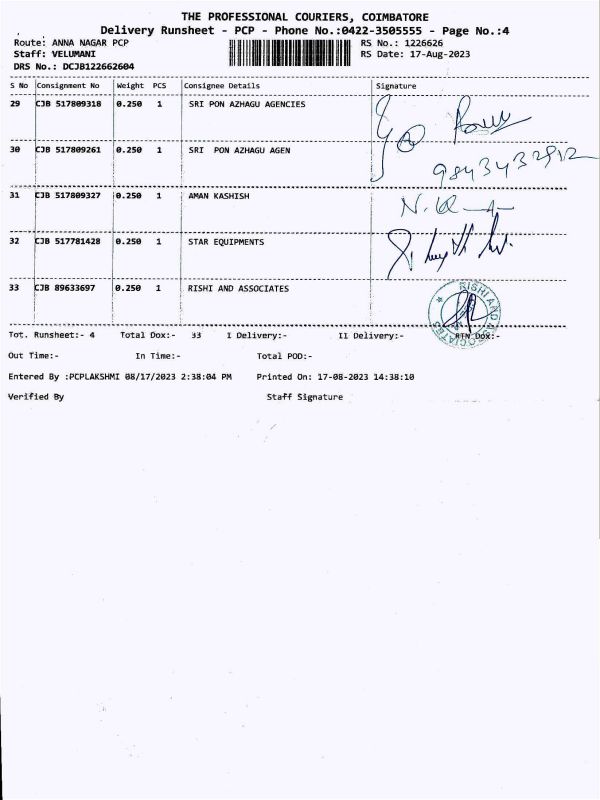 THE PROFESSIONAL COURIERS, COIMBATORE
Delivery Runsheet - PCP - Phone No.:0422-3505555 - Page No.:4
Route: ANNA NAGAR PCP RS No.: 1226626
Staff: VELUMANI RS Date: 17-Aug-2023
DRS No.: DCJB122662604
S No Consignment No Weight PCS Consignee Details Signature
29 CJB 517809318 0.250 1 SRI PON AZHAGU AGENCIES
30 CJB 517809261 0.250 1 SRI PON AZHAGU AGEN
31 CJB 517809327 0.250 1 AMAN KASHISH
32 CJB 517781428 0.250 1 STAR EQUIPMENTS
33 CJB 89633697 0.250 1 RISHI AND ASSOCIATES
RISHI AND ASSOCIATES
Tot. Runsheet:- 4 Total Dox:- 33 I Delivery:- II Delivery:- RTN Dox:-
Out Time:- In Time:- Total POD:-
Entered By :PCPLAKSHMI 08/17/2023 2:38:04 PM Printed On: 17-08-2023 14:38:10
Verified By Staff Signature